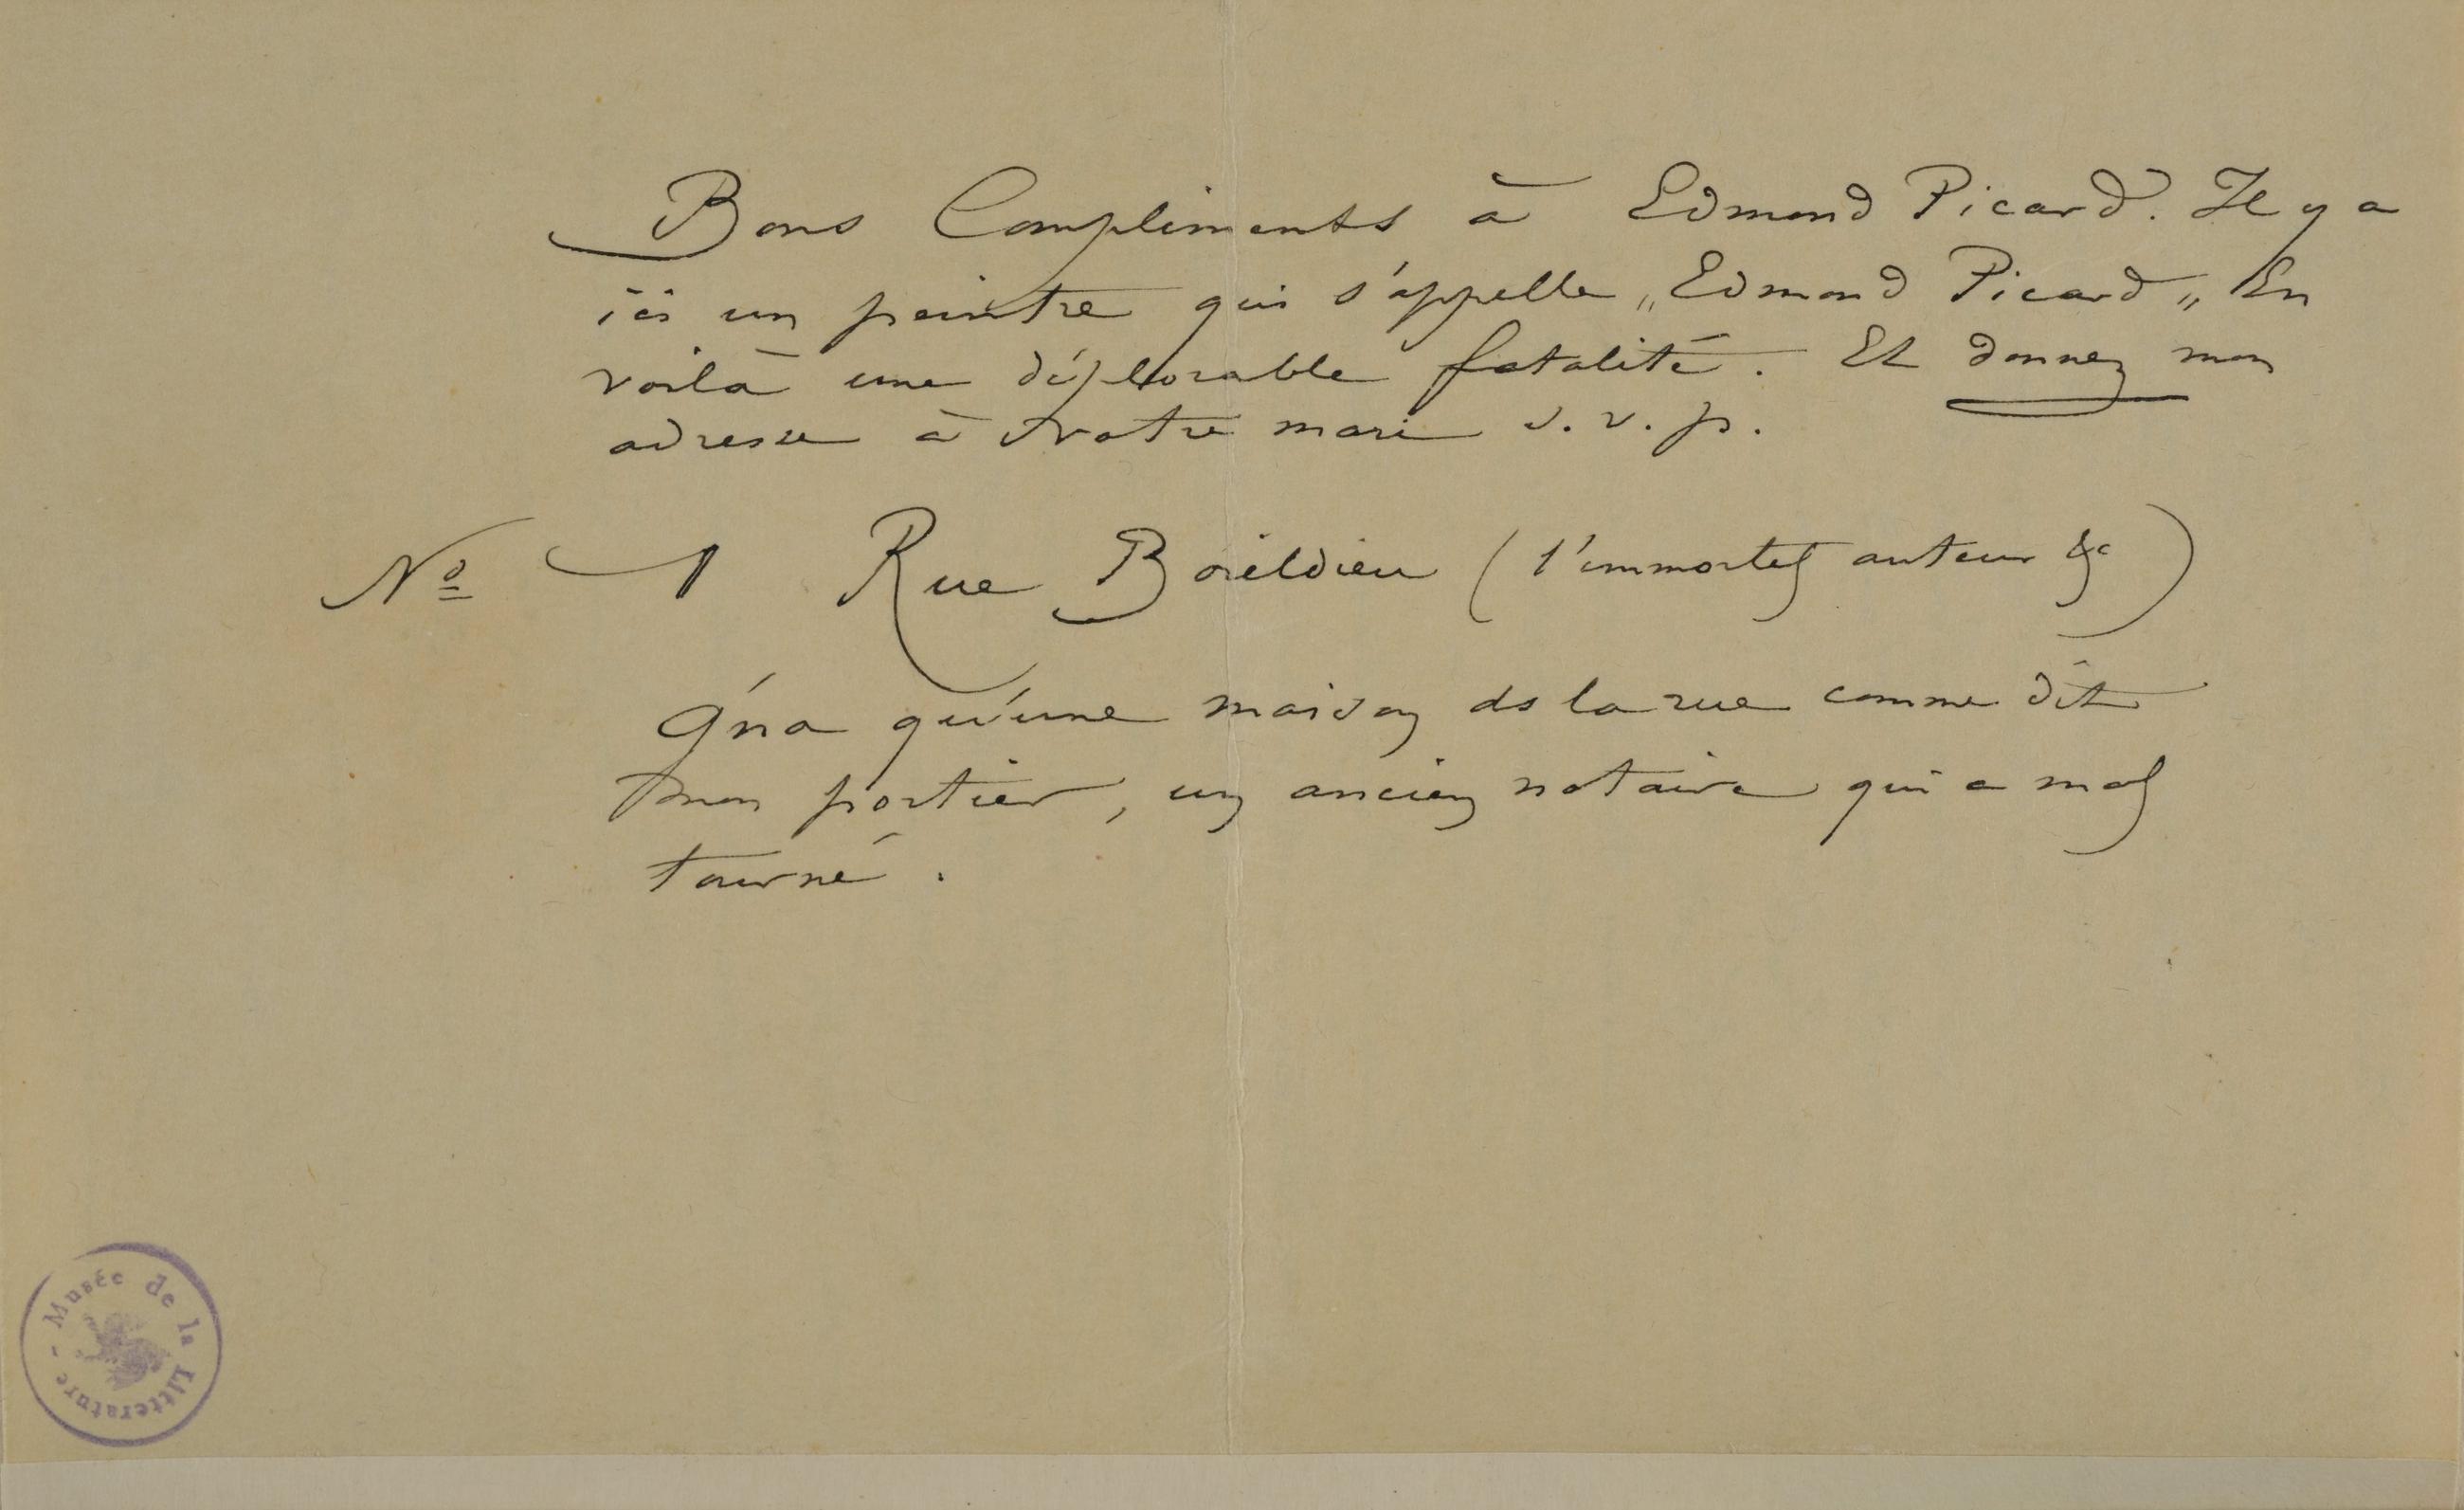 Bons Compliments à Edmond Picard. Il y a
ici un peintre qui s'appelle „Edmond Picard„ En
voilà une déplorable fatalité. Et donnez mon
adresse à votre mari s.v.p.
Nº 1 Rue Boieldieu (l'immortel auteur &c)
G'na qu'une maison ds la rue comme dit
mon portier, un ancien notaire qui a mal
tourné.
Musée de la Littérature -